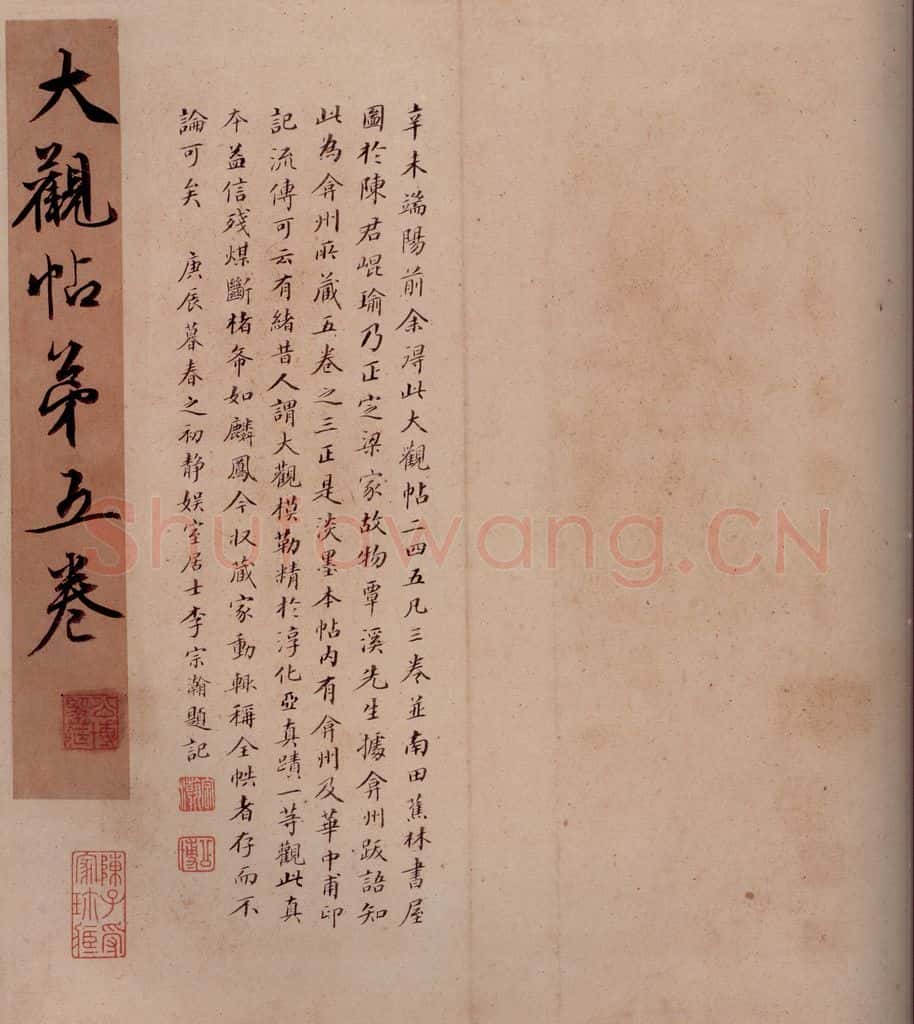 辛未端陽前余得此大觀帖二四五凡三卷並南田蕉林書屋
圖於陳君崐瑜乃正定梁家故物覃溪先生據弇州跋語知
此為弇州所藏五卷之三正是淡墨本帖內有弇州及華中甫印
記流傳可云有緒昔人謂大觀模勒精於淳化亞真蹟一等觀此真
本益信殘煤斷楮希如麟鳳今收藏家動輒稱全帙者存而不
論可矣 庚辰暮春之初靜娛室居士李宗瀚題記
宗瀚
公博
大觀帖第五卷
公博
陳子受家珍藏
Shufawang.CN